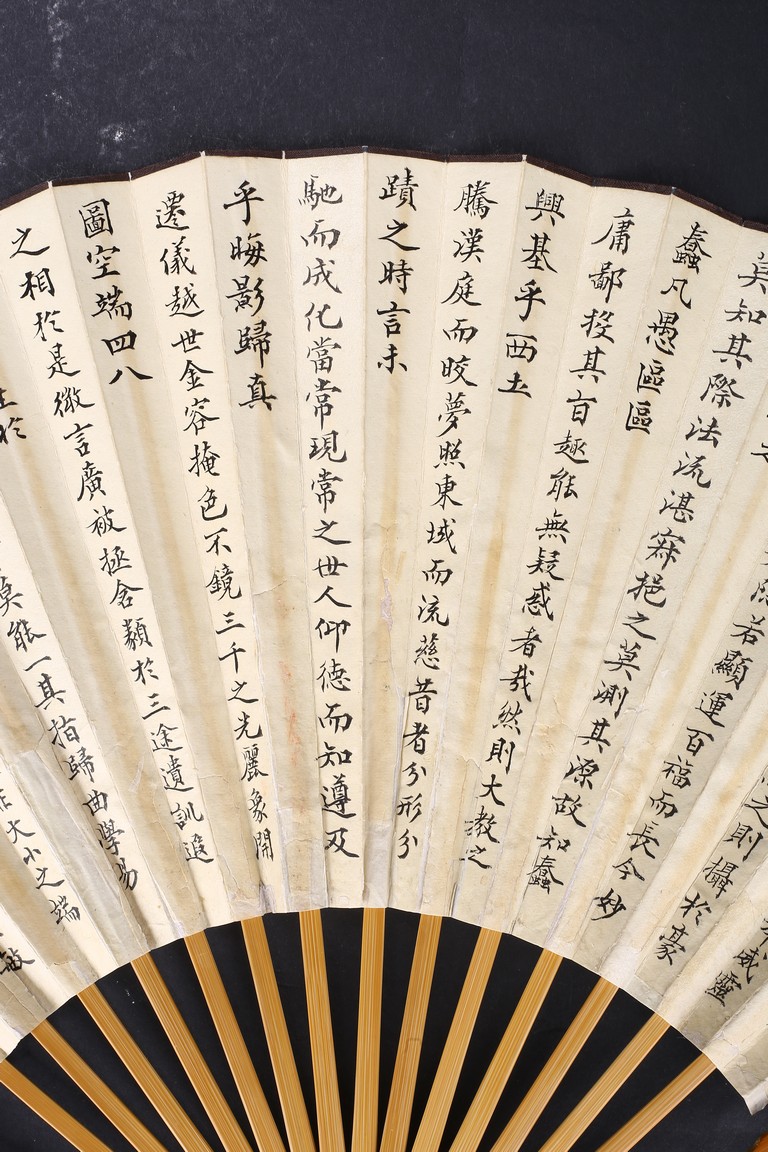 威靈
之則攝於豪
若顯運百福而長今妙
莫知其際法流湛寂挹之莫測其源故知蠢
蠢凡愚區區
庸鄙投其旨趣能無疑惑者哉然則大教之
興基乎西土
騰漢庭而晈夢照東域而流慈昔者分形分
蹟之時言未
馳而成化當常現常之世人仰德而知遵及
乎晦影歸真
遷儀越世金容掩色不鏡三千之光麗象開
圖空端四八
之相於是微言廣被拯含類於三途遺訓遐
生於
莫能一其指歸曲學易
大小之端
敏